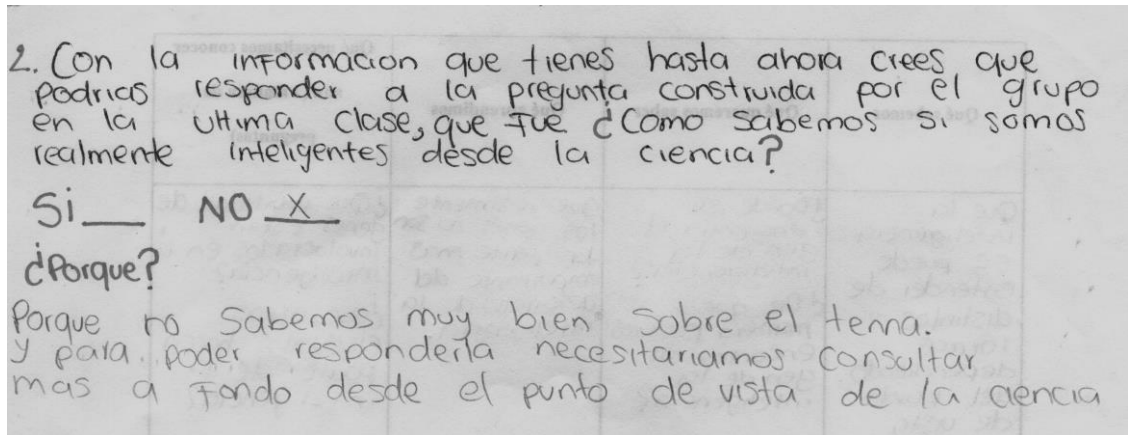 2. Con la informacion que tienes hasta ahora crees que
podrias responder a la pregunta construida por el grupo
en la ultima clase, que fue ¿Como sabemos si somos
realmente inteligentes desde la ciencia?
Si___ NO _X_
¿Porque?
Porque no sabemos muy bien sobre el tema.
y para poder responderla necesitariamos consultar
mas a fondo desde el punto de vista de la ciencia